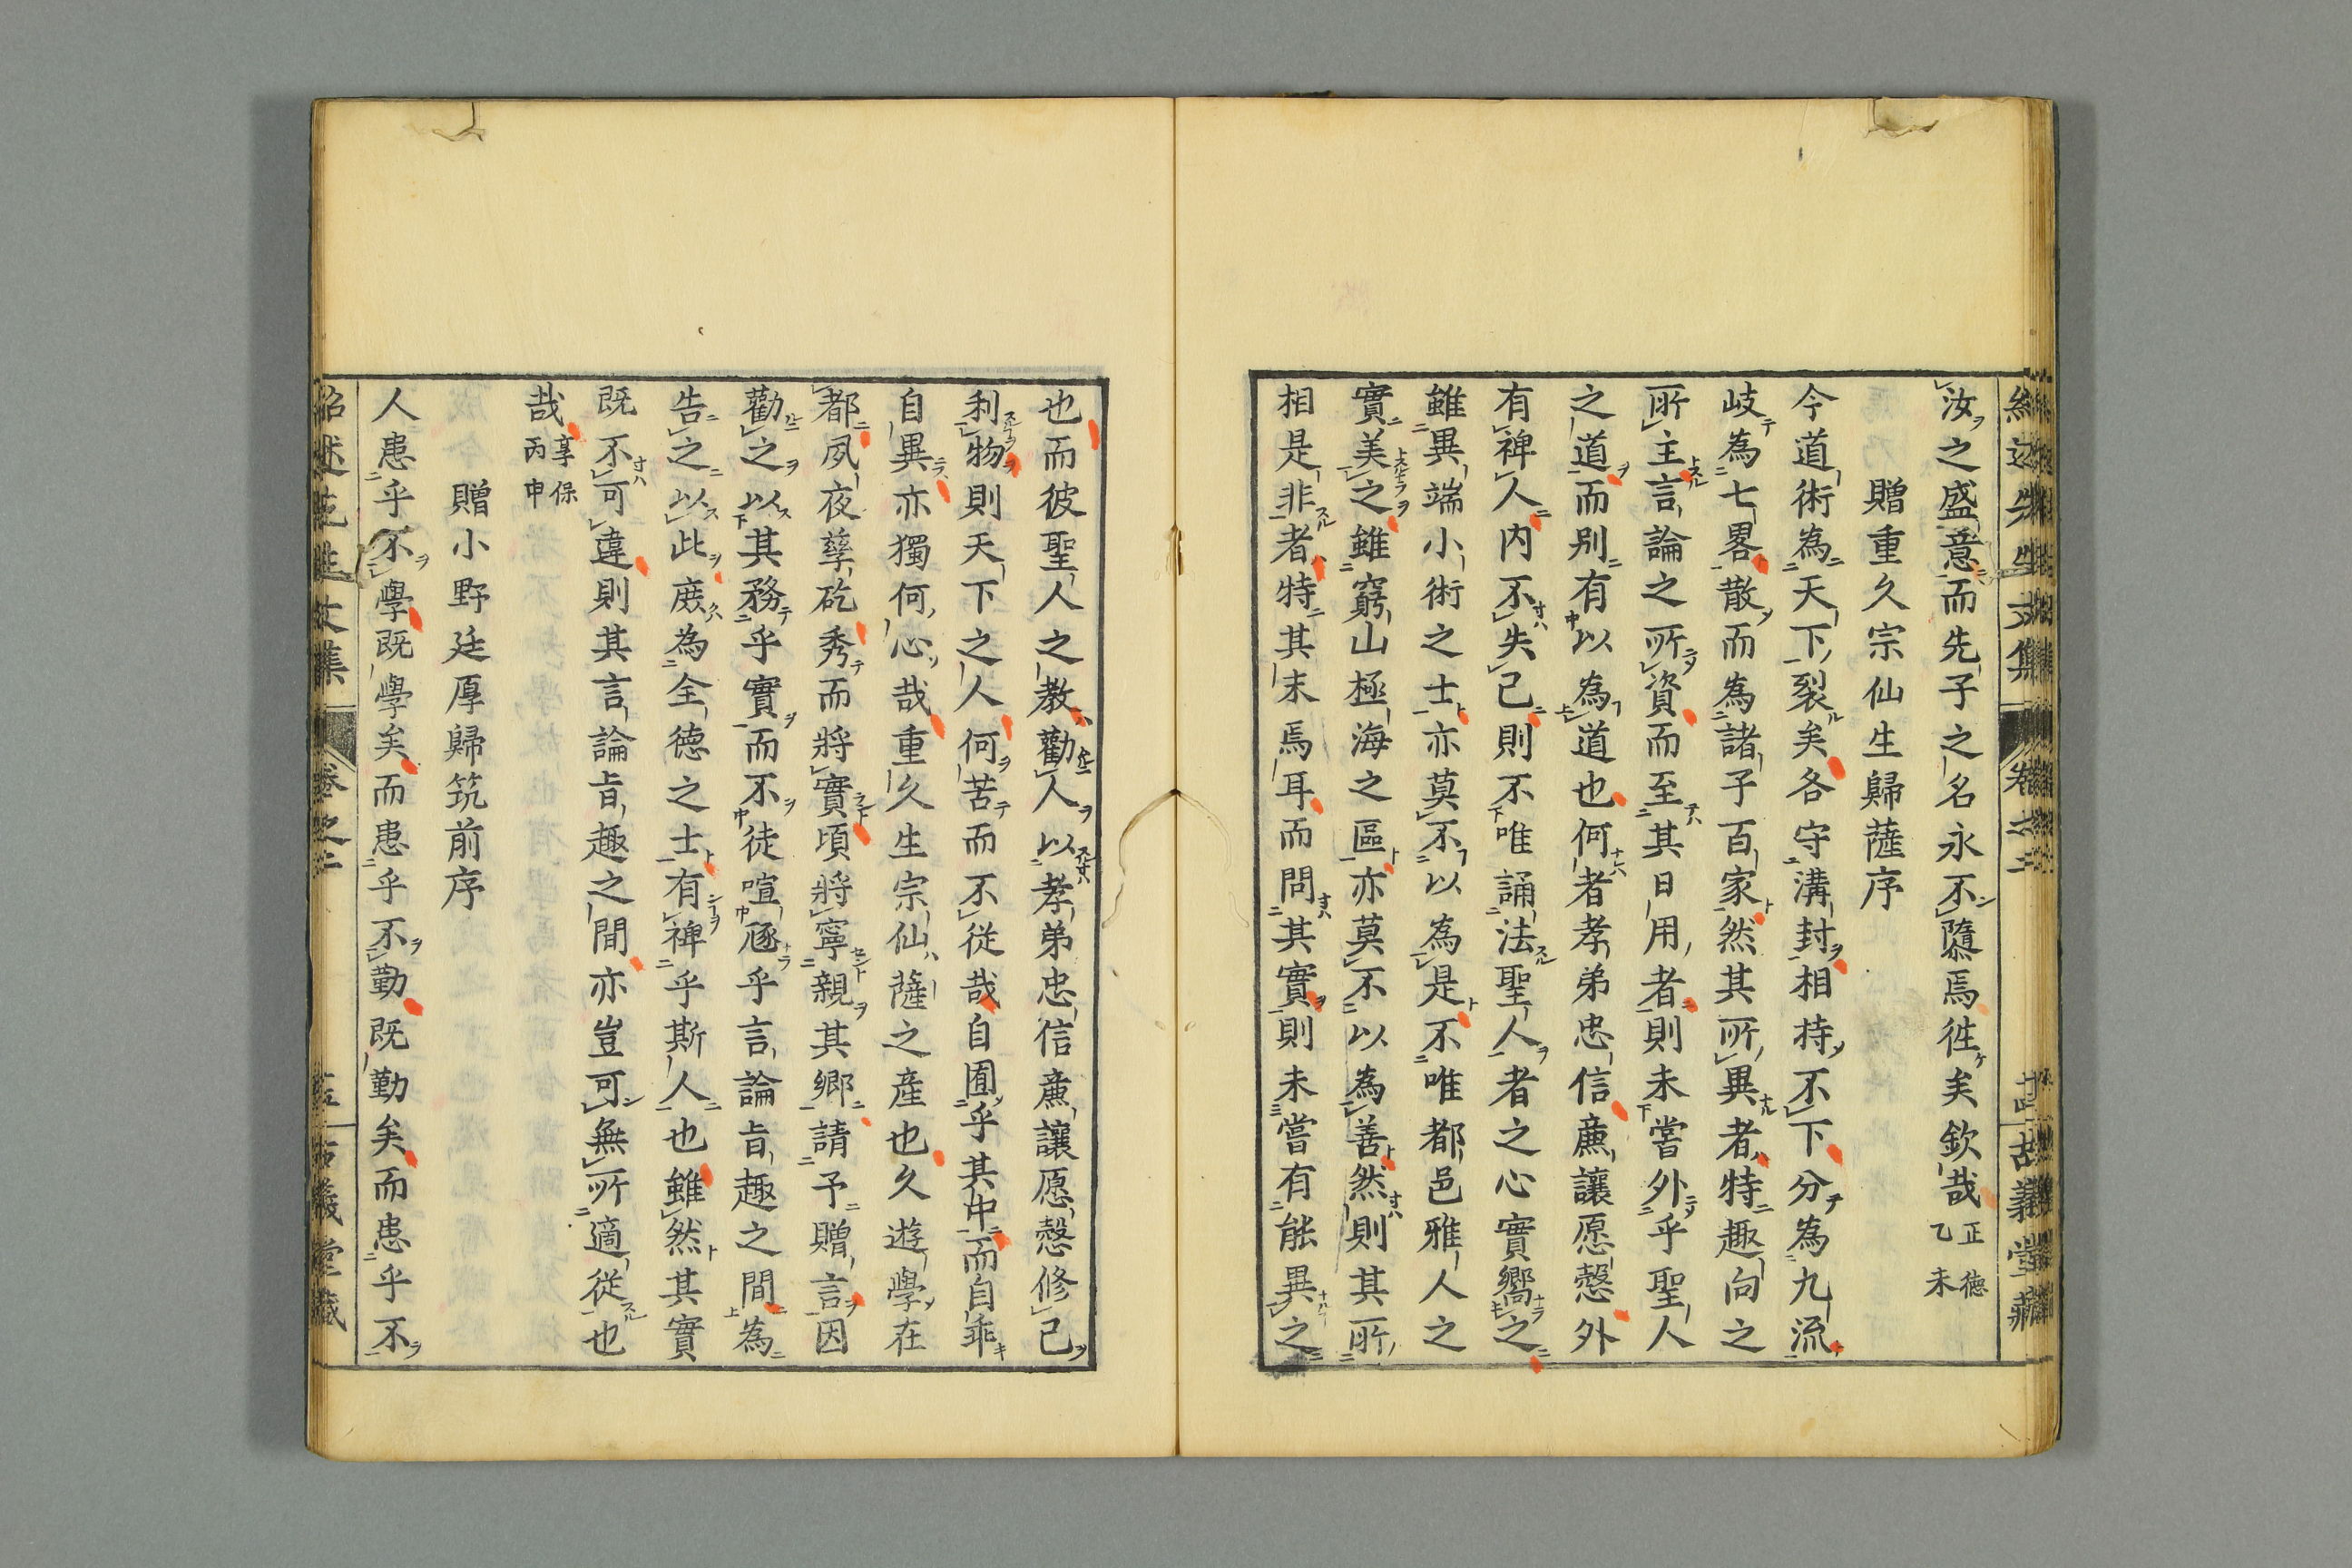 汝之盛意而先子之名永不隨焉徃矣欽哉正德乙未
贈重久宗仙生歸薩序
今道術為天下裂矣各守溝封相持不下分為九流
岐為七畧散而為諸子百家然其所異者特趣向之
所主言論之所資而至其日用者則未嘗外乎聖人
之道而別有以為道也何者孝弟忠信廉讓愿慤外
有裨人內不失己則不唯誦法聖人者之心實嚮之
雖異端小術之士亦莫不以為是不唯都邑雅人之
實美之雖窮山極海之區亦莫不以為善然則其所
相是非者特其末焉耳而問其實則未嘗有能異之
也而彼聖人之教勸人以孝弟忠信廉讓愿慤修己
利物則天下之人何苦而不從哉自囿乎其中而自乖
自異亦獨何心哉重久生宗仙薩之產也久遊學在
都夙夜孳矻秀而將實頃將寧親其鄉請予贈言因
勸之以其務乎實而不徒喧豗乎言論旨趣之間為
告之以此庶為全德之士有裨乎斯人也雖然其實
既不可違則其言論旨趣之間亦豈可無所適從也
哉享保丙申
贈小野廷厚歸筑前序
人患乎不學既學矣而患乎不勤既勤矣而患乎不
紹述先生文集 卷之二 古義堂藏